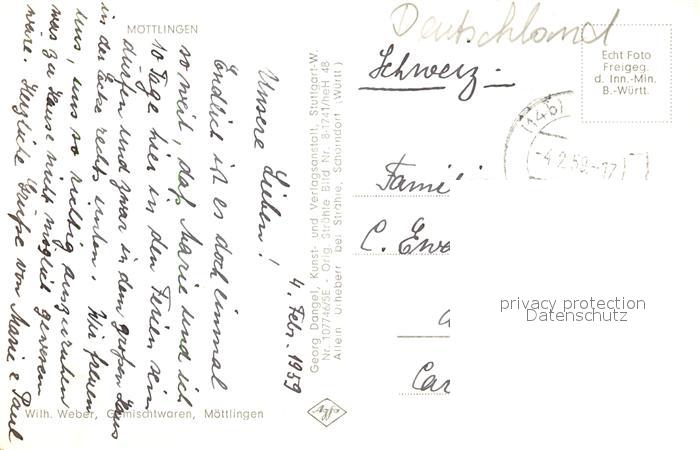 MÖTTLINGEN
4. Febr. 1959
Unsere Lieben!
Endlich ist es doch einmal
so weit, daß Marie und ich
10 Tage hier in den Ferien sein
dürfen und zwar in dem großen Haus
in der Ecke rechts unten. Wir freuen
uns, uns so richtig auszuruhen
was zu Hause nicht möglich gewesen
wäre. Herzliche Grüße von Marie & Paul
Wilh. Weber, Gemischtwaren, Möttlingen
Georg Dangel, Kunst- und Verlagsanstalt, Stuttgart-W.
Nr. 107746/5E - Orig. Strähle Bild Nr. 8-1741/heH 48
Allein Urheberr bei Strähle, Schorndorf (Württ)
Agfa
Deutschland
Schweiz
Echt Foto
Freigeg.
d. Inn.-Min.
B.-Württ.
(14b)
-4.2.59.-17
Fami
C. Ewa
Car
privacy protection
Datenschutz